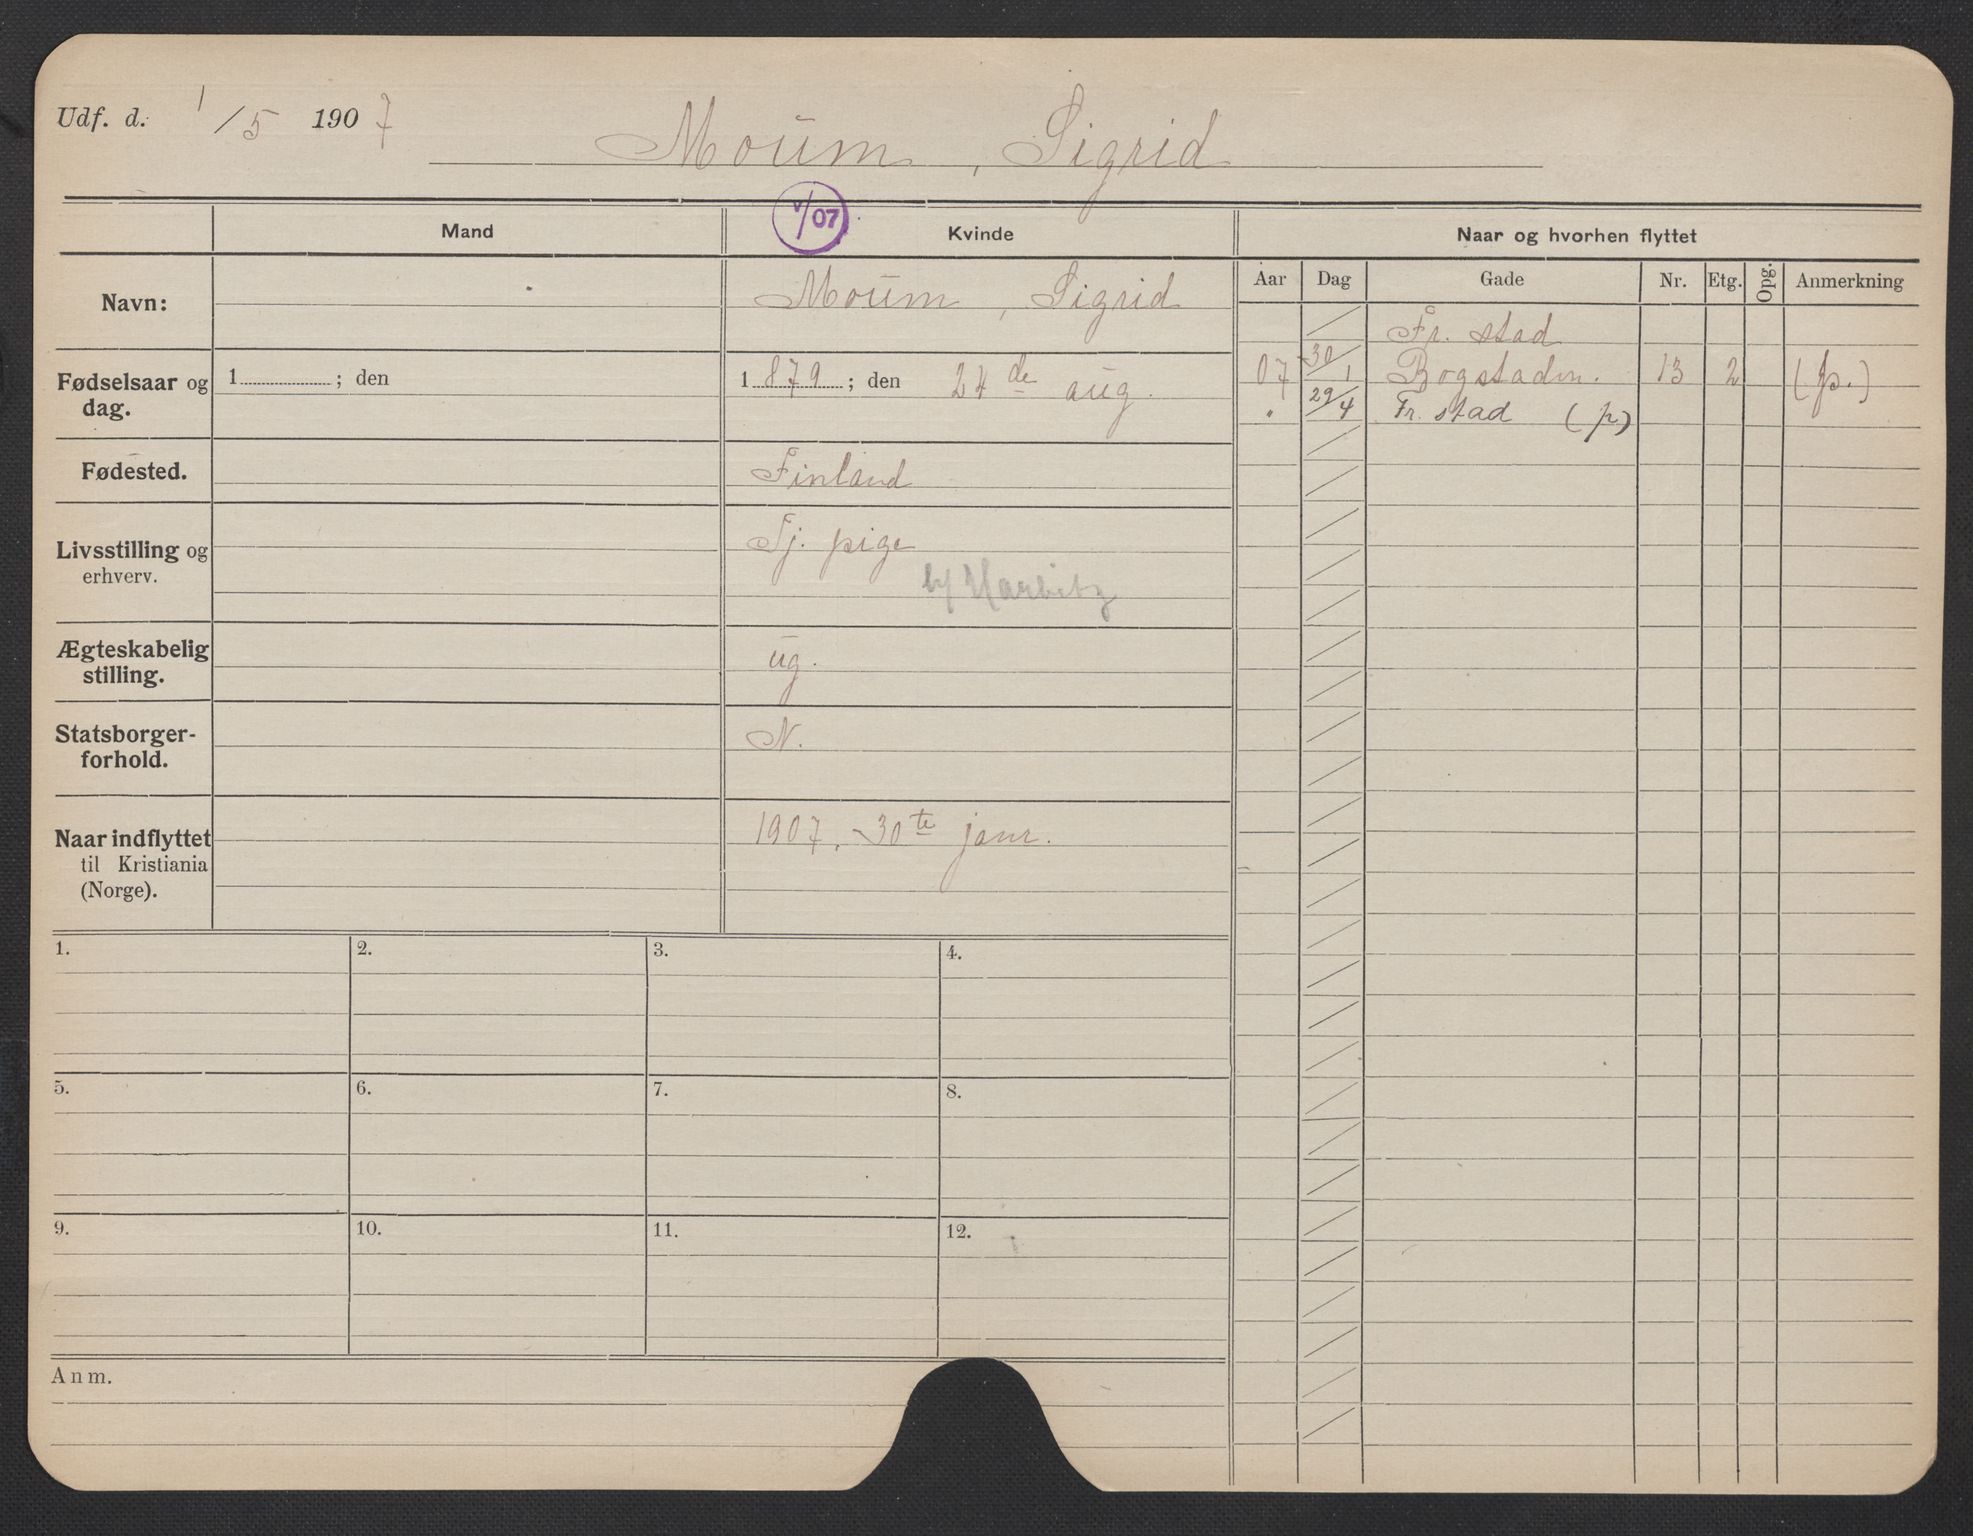 Udf. d. 1/5 1907
Moum, Sigrid
v/07
Mand
Kvinde
Naar og hvorhen flyttet
Navn:
Moum, Sigrid
Fødselsaar og dag.
1 ; den
1879 ; den 24de aug.
Fødested.
Finland
Livsstilling og erhverv.
Tj. pige
b/ Harbitz
Ægteskabelig stilling.
ug.
Statsborgerforhold.
N.
Naar indflyttet til Kristiania (Norge).
1907, 30te janr.
1. 2. 3. 4.
5. 6. 7. 8.
9. 10. 11. 12.
Anm.
Aar Dag Gade Nr. Etg. Opg. Anmerkning
Fr. stad
07 30/1 Bogstadvn. 13 2 (p.)
" 29/4 Fr. stad (p)